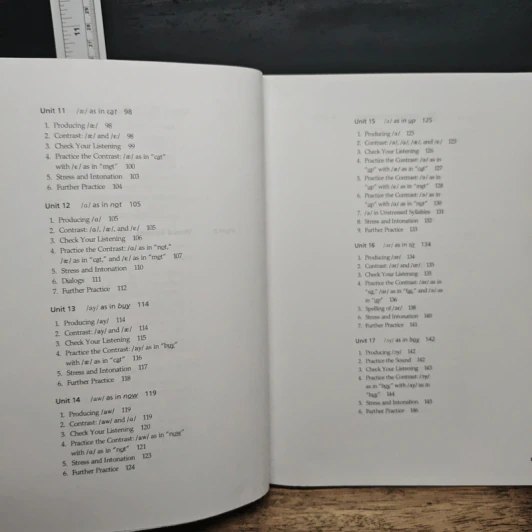 Unit 11 /æ/ as in cat 98
1. Producing /æ/ 98
2. Contrast: /æ/ and /ɛ/ 98
3. Check Your Listening 99
4. Practice the Contrast: /æ/ as in "cat"
with /ɛ/ as in "met" 100
5. Stress and Intonation 103
6. Further Practice 104
Unit 12 /ɑ/ as in not 105
1. Producing /ɑ/ 105
2. Contrast: /ɑ/, /æ/, and /ɛ/ 105
3. Check Your Listening 106
4. Practice the Contrast: /ɑ/ as in "not,"
/æ/ as in "cat," and /ɛ/ as in "met" 107
5. Stress and Intonation 110
6. Dialogs 111
7. Further Practice 112
Unit 13 /ay/ as in buy 114
1. Producing /ay/ 114
2. Contrast: /ay/ and /æ/ 114
3. Check Your Listening 115
4. Practice the Contrast: /ay/ as in "buy"
with /æ/ as in "cat" 116
5. Stress and Intonation 117
6. Further Practice 118
Unit 14 /aw/ as in now 119
1. Producing /aw/ 119
2. Contrast: /aw/ and /ɑ/ 119
3. Check Your Listening 120
4. Practice the Contrast: /aw/ as in "now"
with /ɑ/ as in "not" 121
5. Stress and Intonation 123
6. Further Practice 124
Unit 15 as in up 125
1. Producing 125
2. Contrast:
3. Check Your Listening 126
4. Practice the Contrast: as in
"up" with /æ/ as in "cat" 127
5. Practice the Contrast: as in
"up" with /ɛ/ as in "met" 128
6. Practice the Contrast: as in
"up" with /ɑ/ as in "not"
7. in Unstressed Syllables
8. Stress and Intonation 132
9. Further Practice 133
Unit 16 as in sir 134
1. Producing 134
2. Contrast:
3. Check Your Listening 135
4. Practice the Contrast: as in
"up" 136
5. Spelling of 138
6. Stress and Intonation 140
7. Further Practice 141
Unit 17 /oy/ as in boy 142
1. Producing /oy/ 142
2. Practice the Sound 142
3. Check Your Listening 143
4. Practice the Contrast: /oy/
as in "boy" with /ay/ as in
"buy" 144
5. Stress and Intonation 145
6. Further Practice 146
11